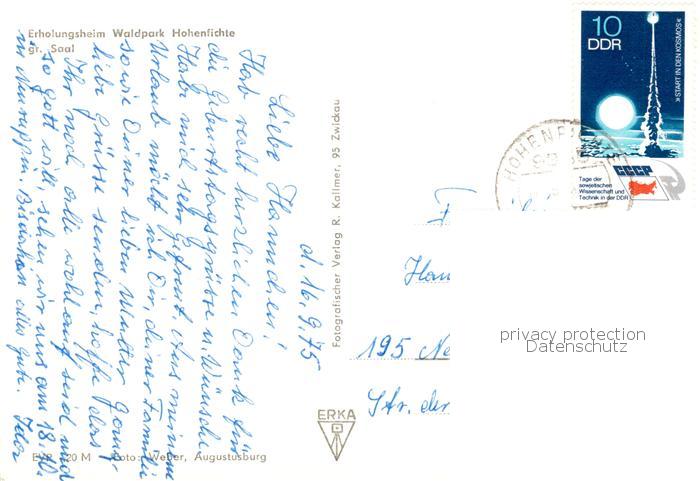 Erholungsheim Waldpark Hohenfichte
gr. Saal
d. 16.9.75
Liebe
Hab recht herzlichen Dank für
die Geburtstagsgrüße u. Wünsche
Habe mich sehr gefreut. Aus meinem
Urlaub möcht ich Dir, deiner Familie
sowie Deiner lieben Mutter
liebe Grüsse senden, hoffe dass
Ihr noch alle wohlauf seid und
so Gott will, sehen wir uns am 18.10.
in Neuruppin. Bis dahin alles Gute.
EVP 20 M Foto: Weber, Augustusburg
Fotografischer Verlag R. Kallmer, 95 Zwickau
ERKA
10
DDR
»START IN DEN KOSMOS«
CCCP
Tage der
sowjetischen
Wissenschaft und
Technik in der DDR
HOHENFI
F
Hau
195 Ne
Str. der
privacy protection
Datenschutz